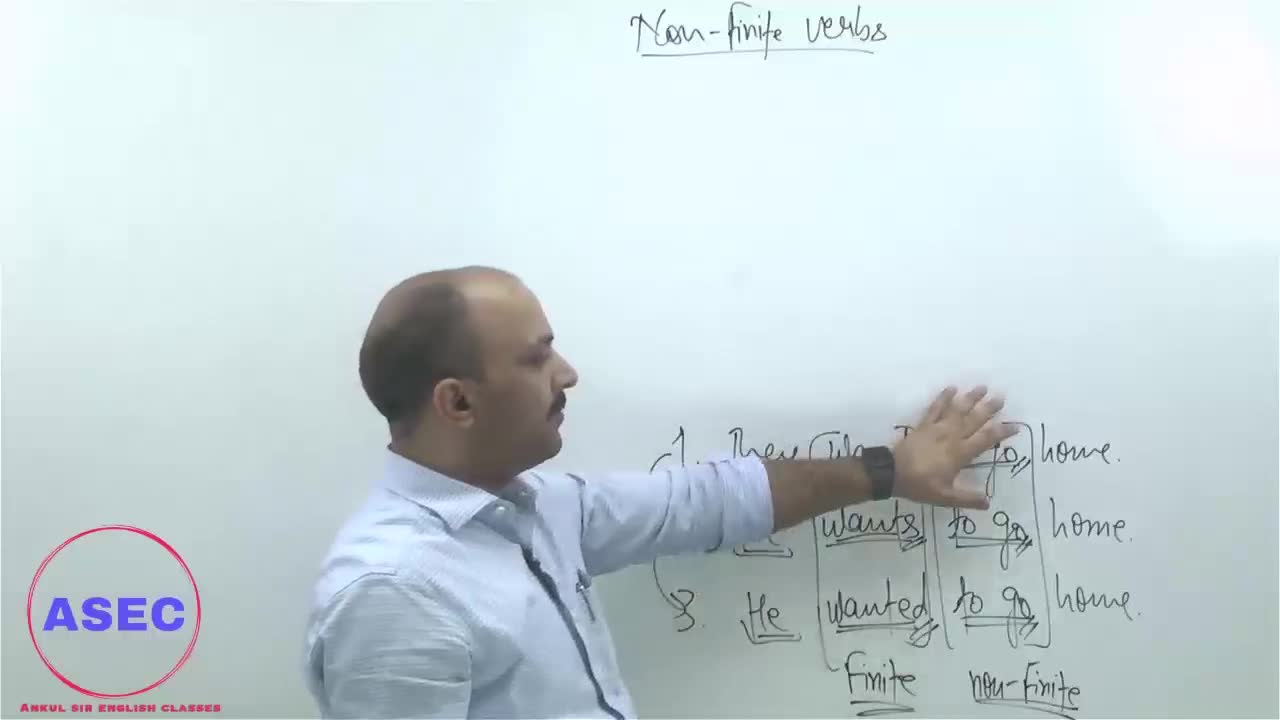 Non-finite verbs
1. They go home.
wants to go home.
3. He wanted to go home.
Finite non-finite
ASEC
ANKUL SIR ENGLISH CLASSES